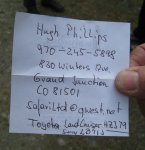 Hugh Phillips
970-245-5898
830 Winters Ave
Grand Junction
CO 81501
safariltd@qwest.net
Toyota Landcruiser HZJ79